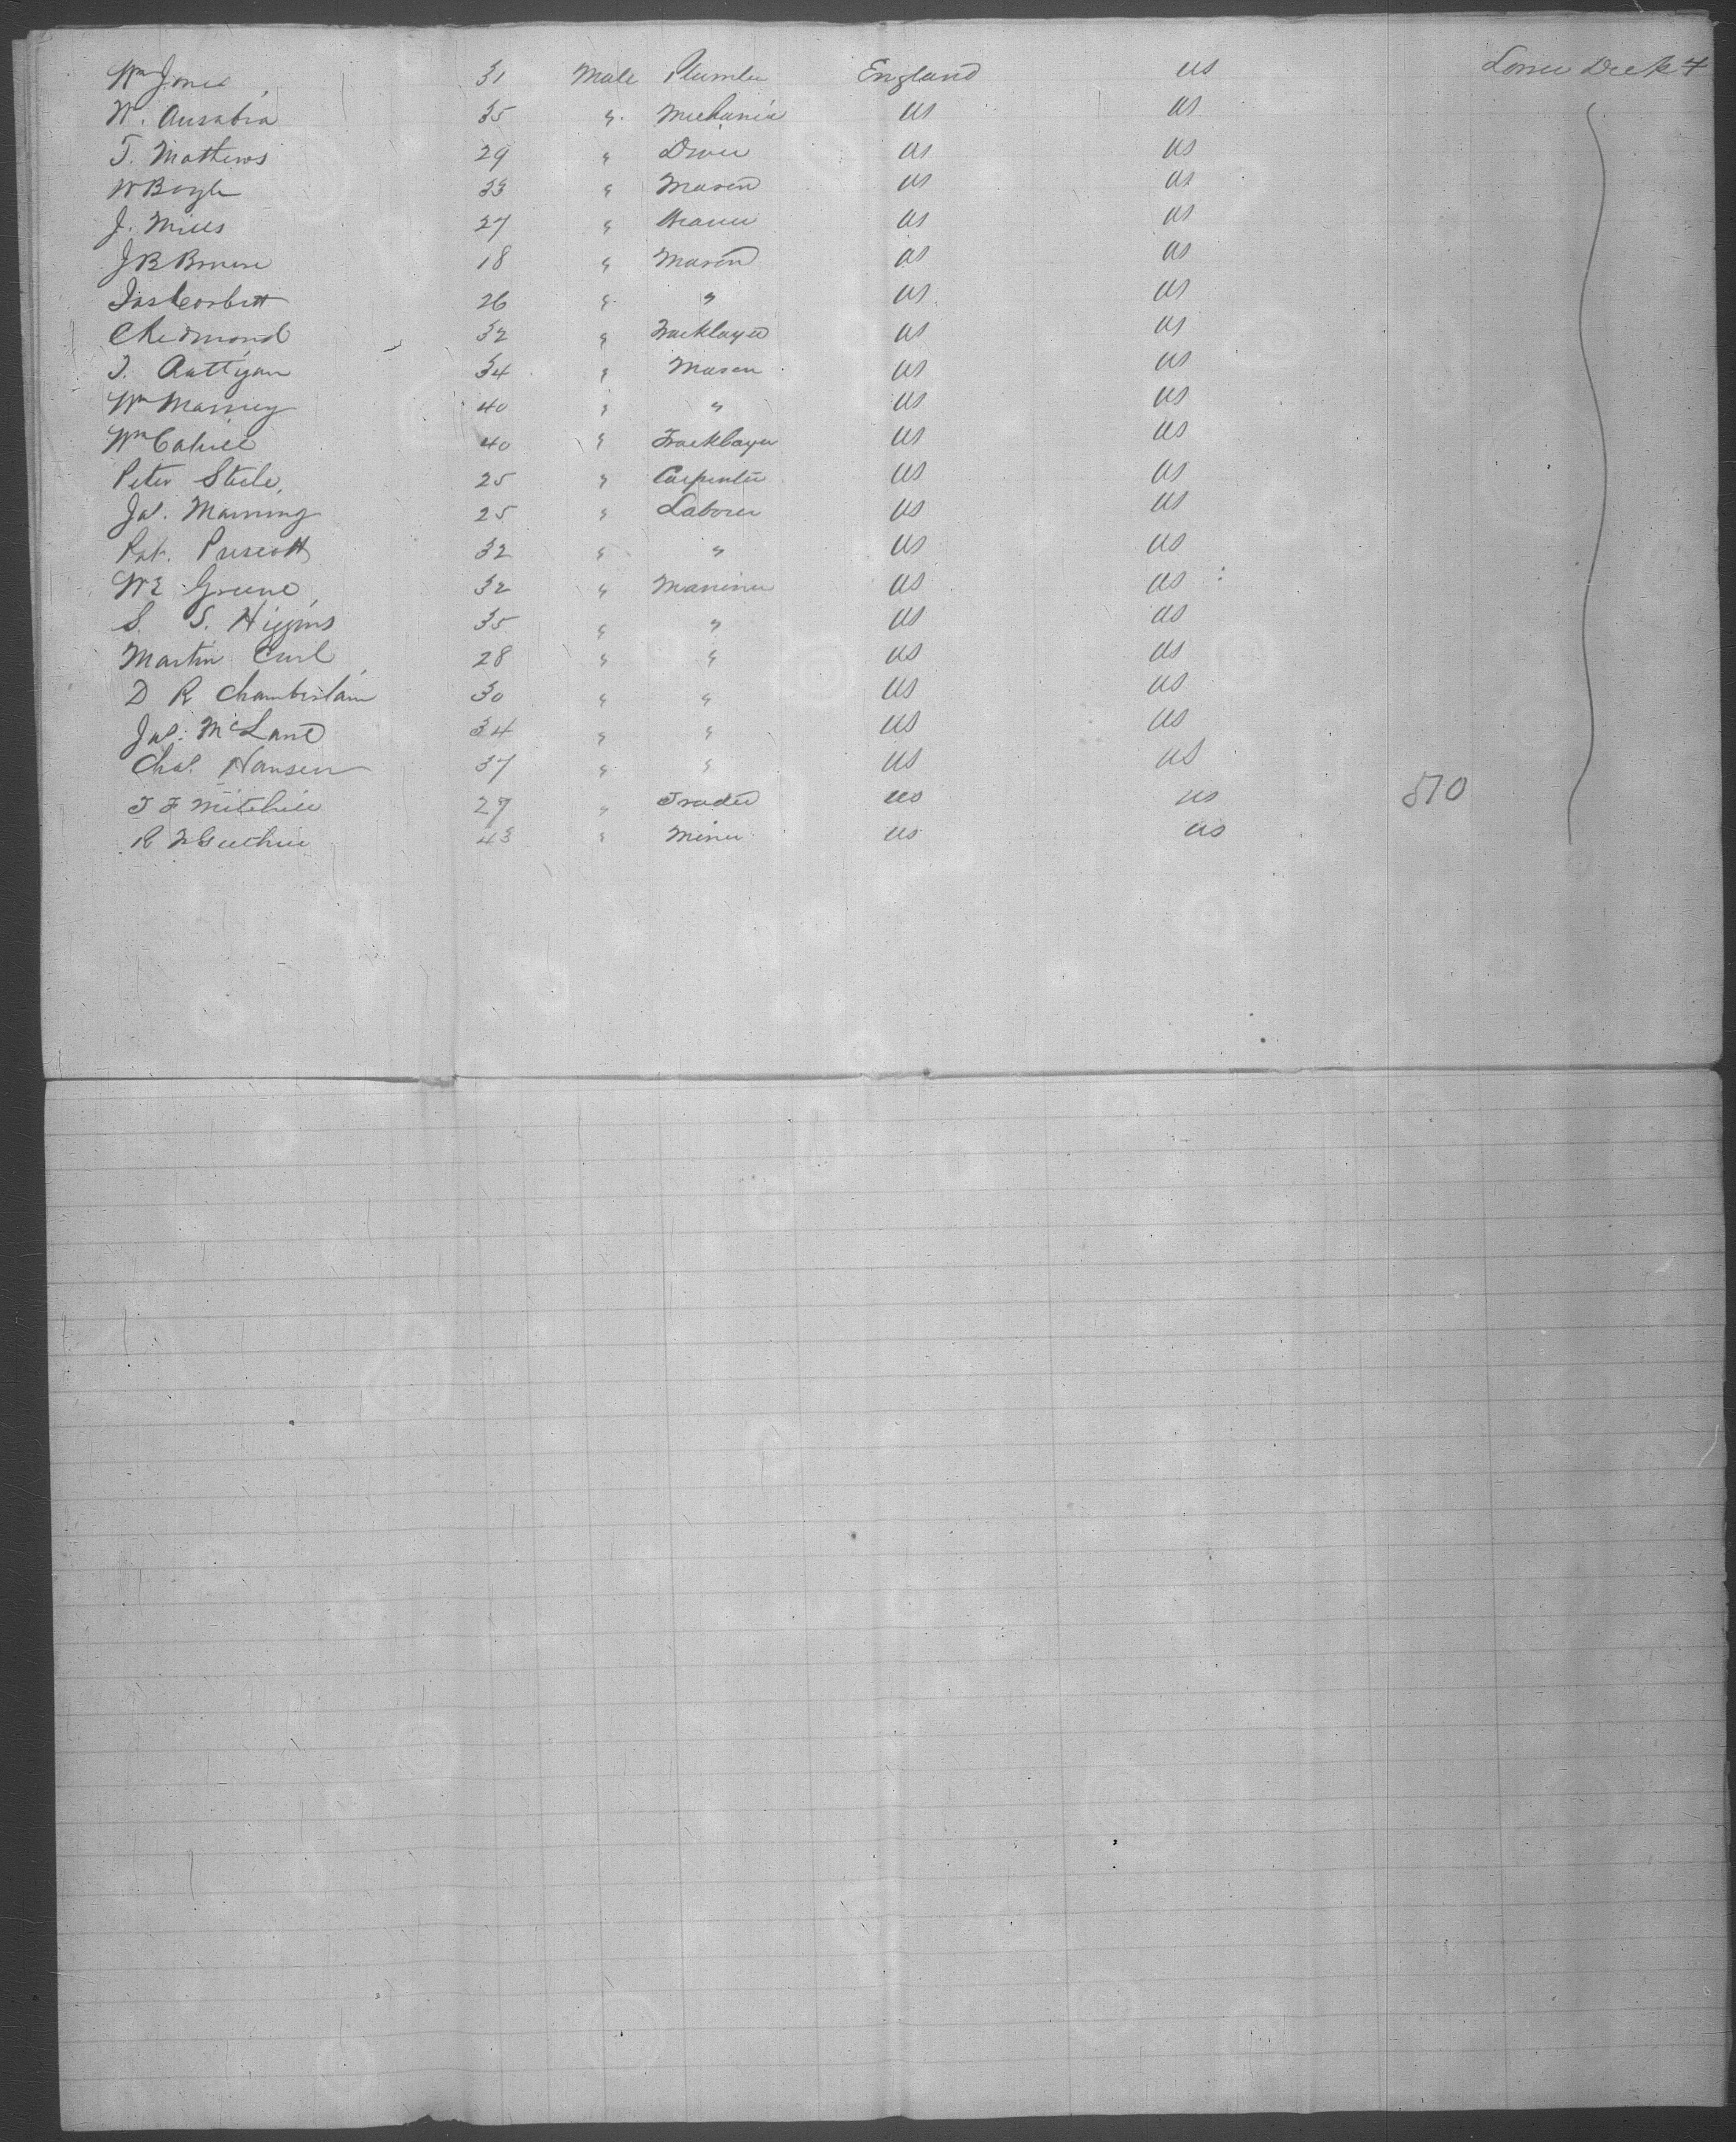 Wm Jones, 31 Male Plumber England US Lower Deck 4
W. 35 " Mechanic US US
T. Mathews 29 " Driver US US
W Boyle 33 " Mason US US
J. Mills 27 " US US
J B 18 " Mason US US
Jas Corbett 26 " " US US
C Redmond 32 " Tracklayer US US
T. Rattigan 34 " Mason US US
Wm 40 " " US US
Wm Cahill 40 " Tracklayer US US
Peter Steele, 25 " Carpenter US US
Jas. Manning 25 " Laborer US US
Pat. Prescott 32 " " US US
W E Greene, 32 " Mariner US US
S. S. Higgins 35 " " US US
Martin Curl 28 " " US US
D R Chamberlain 30 " " US US
Jas. McLane 34 " " US US
Chas. Hansen 37 " " US US
T F Mitchell 27 " Trader US US 510
R Guthrie 43 " Miner US US